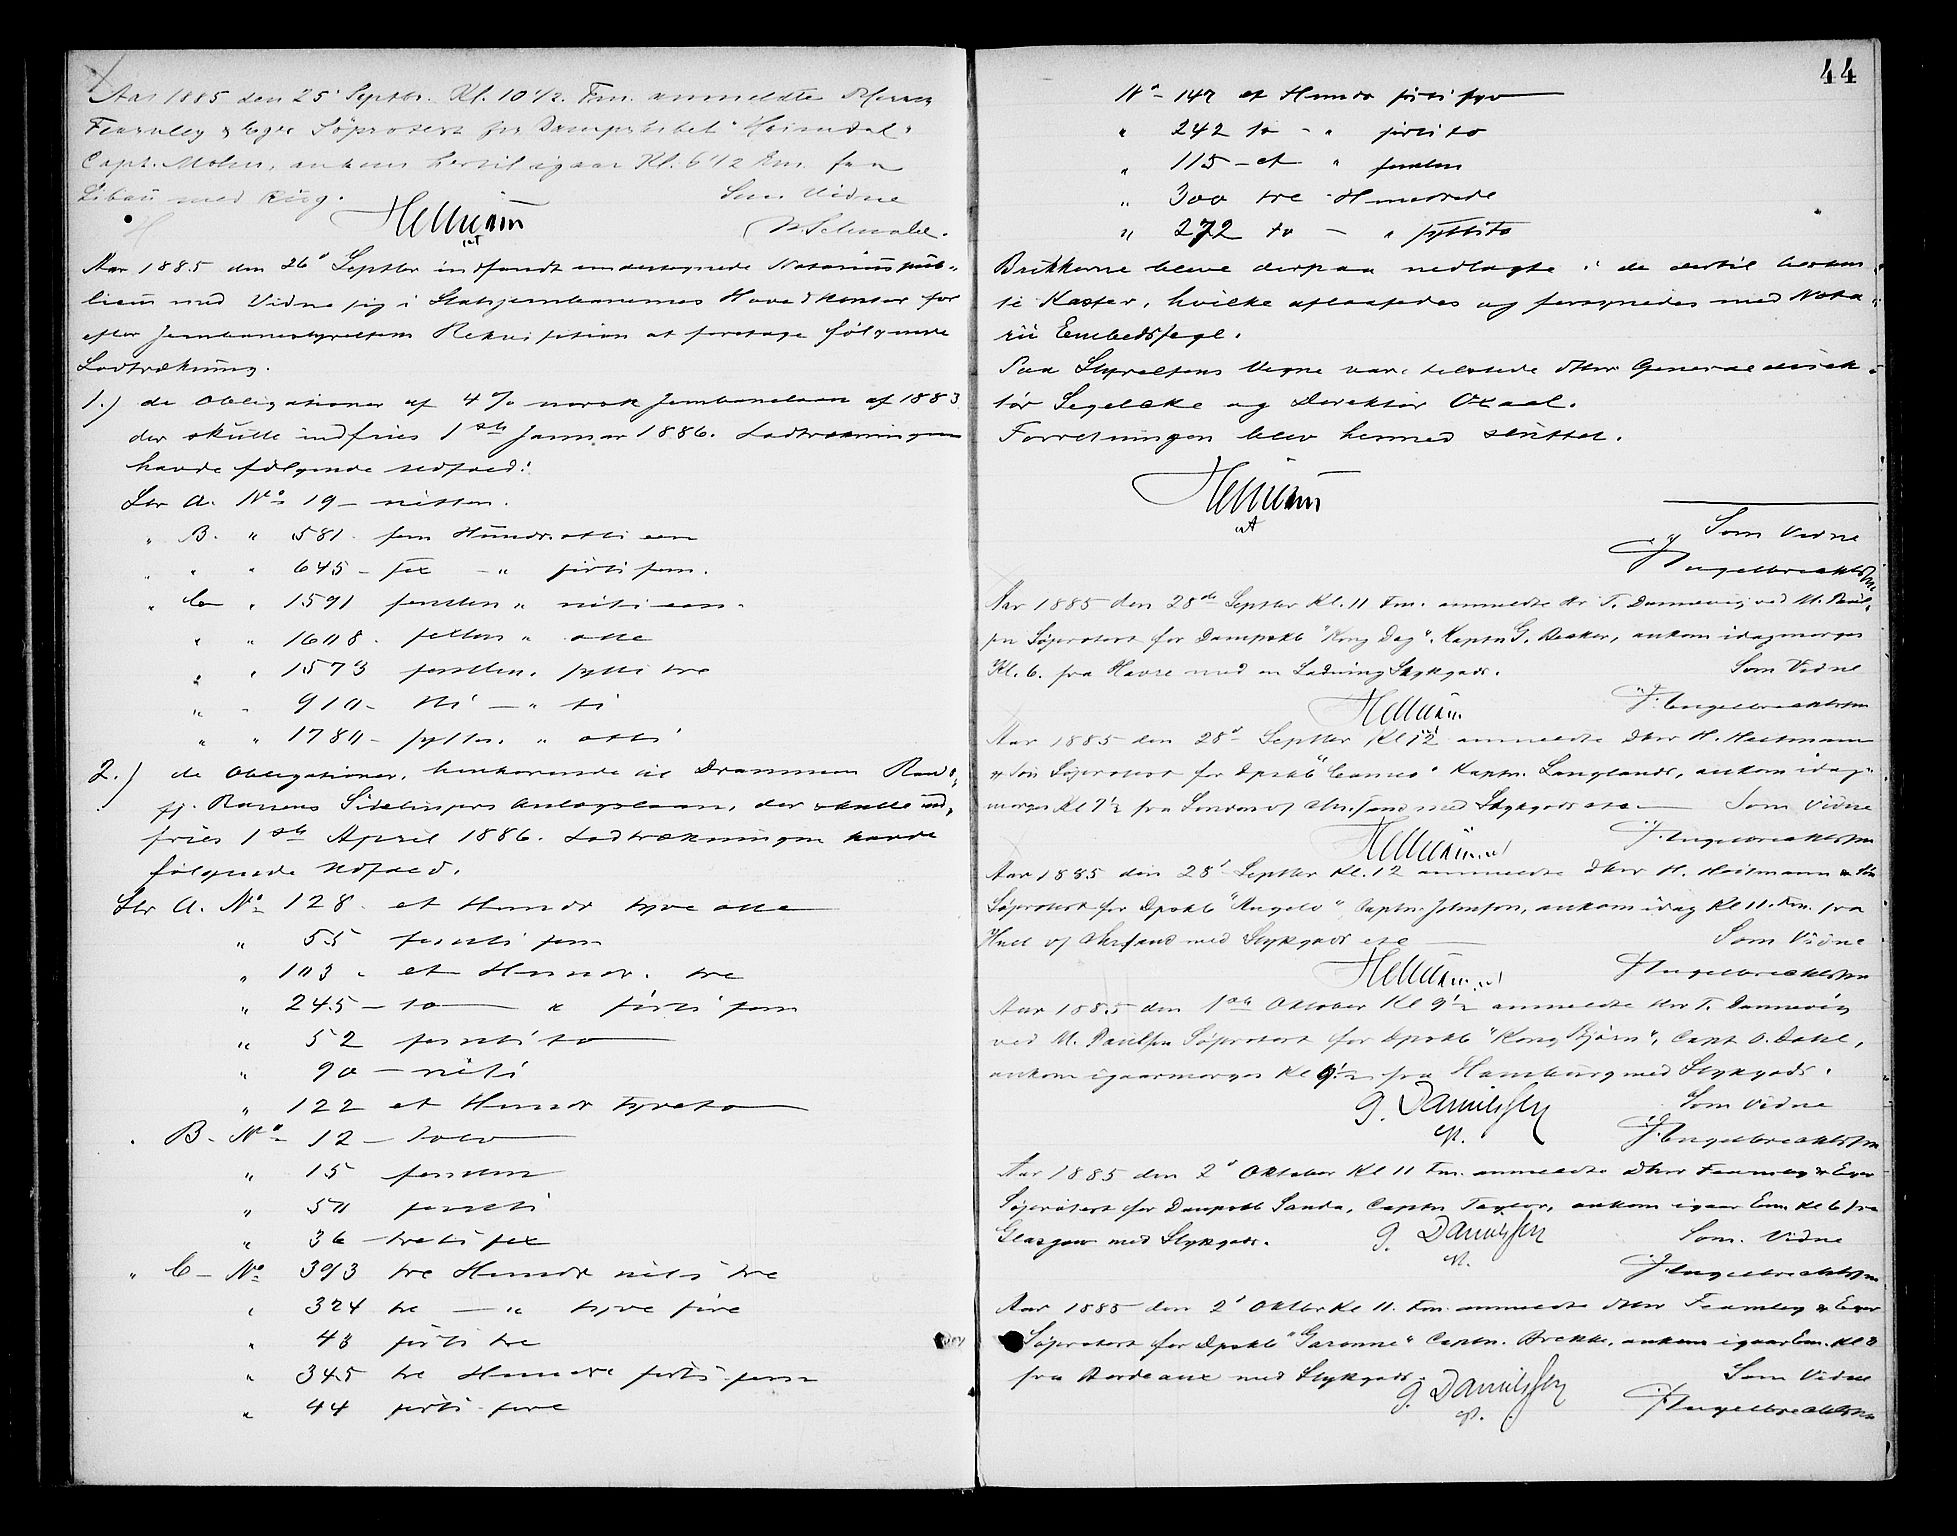 Aar 1885 den 25' Septbr. Kl. 10 1/2. Fm. anmeldte Herrer
Fearnley & Eger Söprotest for Dampskibet "Heimdal"
Capt. Mohn, ankom hertil igaar Kl. 6 1/2 Em. fra
Libau med Rüg. Som Vidne
Aar 1885 den 26' Septbr indfandt undertegnede Notarius püb-
licus med Vidne sig i Statsjernbanernes Hovedkontor for
efter Jernbanestyrelsens Rekvisition at foretage følgende
Lodtrækning.
1.) de Obligationer af 4 % norsk Jernbanelaan af 1883
der skulle indfries 1ste Januar 1886. Lodtrækningen
havde følgende Udfald:
Ltr A. No 19 - nitten.
" B. " 581. fem Hundr. otti een
" " " 645 - sex - " førti fem.
" C " 1591 femten " nitti een.
" " 1608. sexten " otte
" " 1573 femten " sytti tre
" " 910 - ni - " ti
" " 1780 - sytten " otti
2.) de Obligationer, henhørende til Drammen Rands-
fj. Banens Sidelinjers Anlægslaan, der skulle ind-
fries 1ste April 1886. Lodtrækningen havde
følgende Udfald.
Ltr A. No 128. et Hundr tyve otte
" 55 femti fem
" 103. et Hundr. tre
" 245 - to " førti fem
" 52 femti to
" 90 - nitti
" 122 et Hundr tyveto
. B. No 12 - tolv
" 15 femten
" 50 femti
" 36 - tretti sex
" C - No 393 tre Hundr nitti tre
" 324 tre - " tyve fire
" 43 førti tre
" 345 tre Hundre førti fem
" 44 førti fire
44
No - 147 et Hundr førti syv
" 242 to - " førti to
" 115 - et " femten
" 300 tre Hundrede
" 272 to - " sytti to
Brikkerne bleve derpaa nedlagte i de dertil bestem-
te Kasser, hvilke aflaasedes og forsynedes med Nota-
rii Embedssegl.
Paa Styrelsens Vegne var tilstede Dhrr Generaldirek-
tør Segelcke og Direktør Oxaal.
Forretningen blev hermed sluttet.
Som Vidne
Engelbrechtsen
Aar 1885 den 28de Septbr Kl. 11 Fm. anmeldte Hr T. Dannevig ved M. Paul-
sen Søprotest for Dampskb "Kong Dag", Kaptn G. Decker, ankom idagmorges
Kl. 6. fra Havre med en Ladning Stykgods. Som Vidne
Engelbrechtsen
Aar 1885 den 28' Septbr Kl 12 anmeldte Dhrr H. Heitmann
& Søn Søprotest for Dpskb "Cameo" Kaptn. Langlands, ankom idag-
morges Kl 7 1/2 fra London o/ Chr.sand med Stykgods etc Som Vidne
Engelbrechtsen
Aar 1885 den 28' Septbr Kl. 12 anmeldte Dhrr H. Heitmann & Søn
Søprotest for Dpskb "Angelo" Captn. Johnson, ankom idag Kl 11. Fm. fra
Hull o/ Chr.sand med Stykgods etc Som Vidne
Engelbrechtsen
Aar 1885 den 1ste Oktober Kl 9 1/2 anmeldte Hrr T. Dannevig
ved M. Paulsen Søprotest for Dpskb "Kong Bjørn", Capt O. Dahl,
ankom igaarmorges Kl 9 1/2 fra Hamburg med Stykgods.
G. Danielsen Som Vidne
Engelbrechtsen
Aar 1885 den 2' Oktober Kl 11 Fm. anmeldte Dhrr Fearnley & Eger
Søprotest for Dampskb Sanda, Captn Taylor, ankom igaar Em. Kl 6 fra
Glasgow med Stykgods. G. Danielsen Som Vidne
Engelbrechtsen
Aar 1885 den 2' Oktbr Kl 11. Fm. anmeldte Dhrr Fearnley & Eger
Søprotest for Dpskb "Garonne" Captn. Brekke, ankom igaar Em. Kl 8
fra Bordeaux med Stykgods. G. Danielsen Som Vidne
Engelbrechtsen